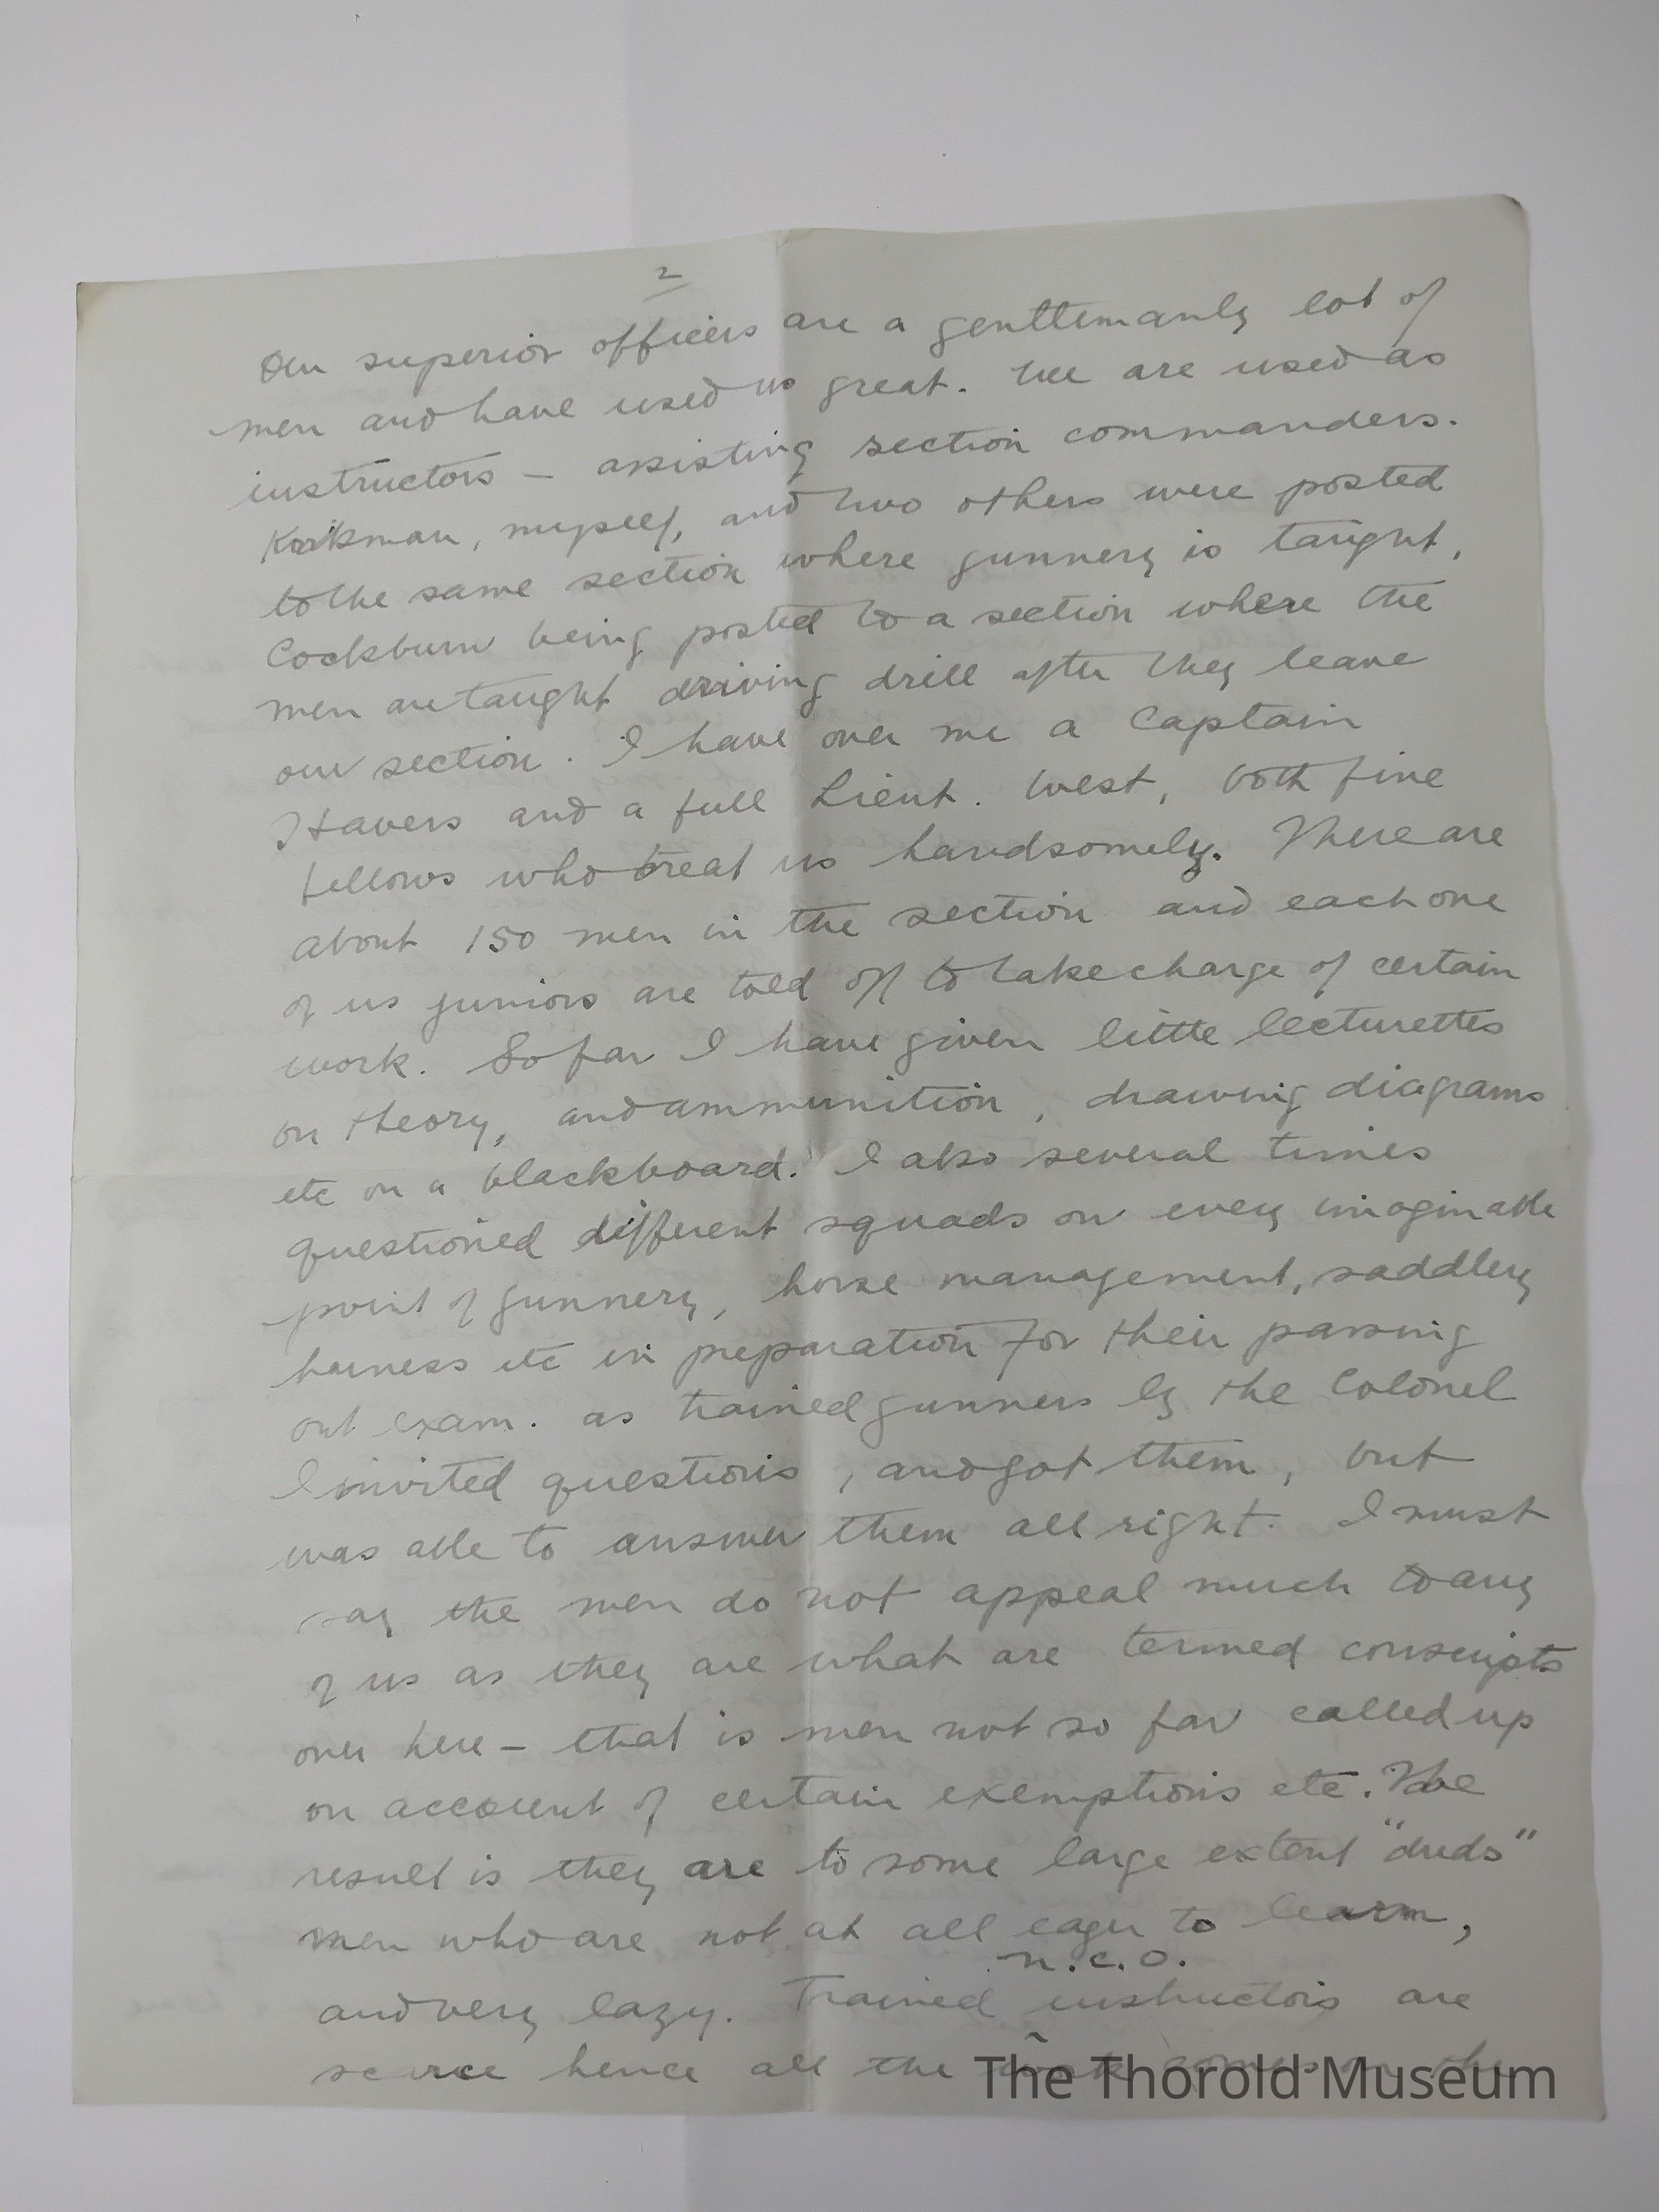 2
Our superior officers are a gentlemanly lot of
men and have used us great. We are used as
instructors – assisting section commanders.
Kirkman, myself, and two others were posted
to the same section where gunnery is taught,
Cockburn being posted to a section where the
men are taught driving drill after they leave
our section. I have over me a Captain
Havers and a full Lieut. West, both fine
fellows who treat us handsomely. There are
about 150 men in the section and each one
of us juniors are told off to take charge of certain
work. So far I have given little lecturettes
on theory, and ammunition, drawing diagrams
etc on a blackboard. I also several times
questioned different squads on every imaginable
point of gunnery, horse management, saddlery
harness etc in preparation for their passing
out exam. as trained gunners by the Colonel
I invited questions, and got them, but
was able to answer them all right. I must
say the men do not appeal much to any
of us as they are what are termed conscripts
over here – that is men not so far called up
on account of certain exemptions etc. The
result is they are to some large extent "duds"
men who are not at all eager to learn,
n.c.o.
and very lazy. Trained instructors are
scarce hence all the work comes on the
The Thorold Museum